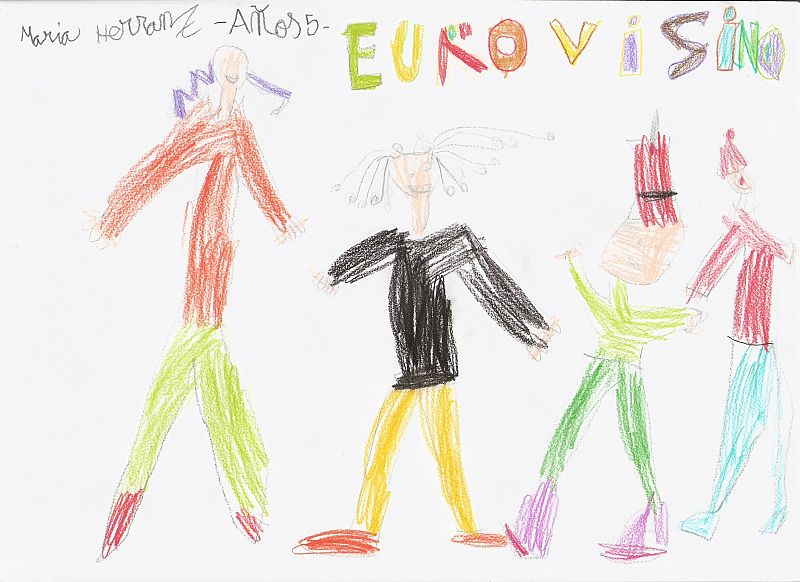 Maria Herranz -AÑOS 5-
EUROVISINO